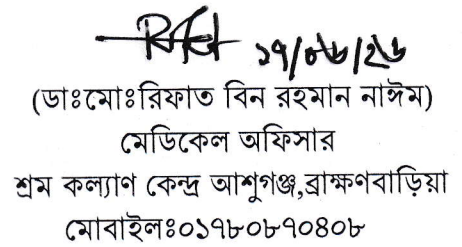 ১৭/০৮/২৬
(ডাঃমোঃরিফাত বিন রহমান নাঈম)
মেডিকেল অফিসার
শ্রম কল্যাণ কেন্দ্র আশুগঞ্জ,ব্রাক্ষণবাড়িয়া
মোবাইলঃ০১৭৮০৮৭০৪০৮